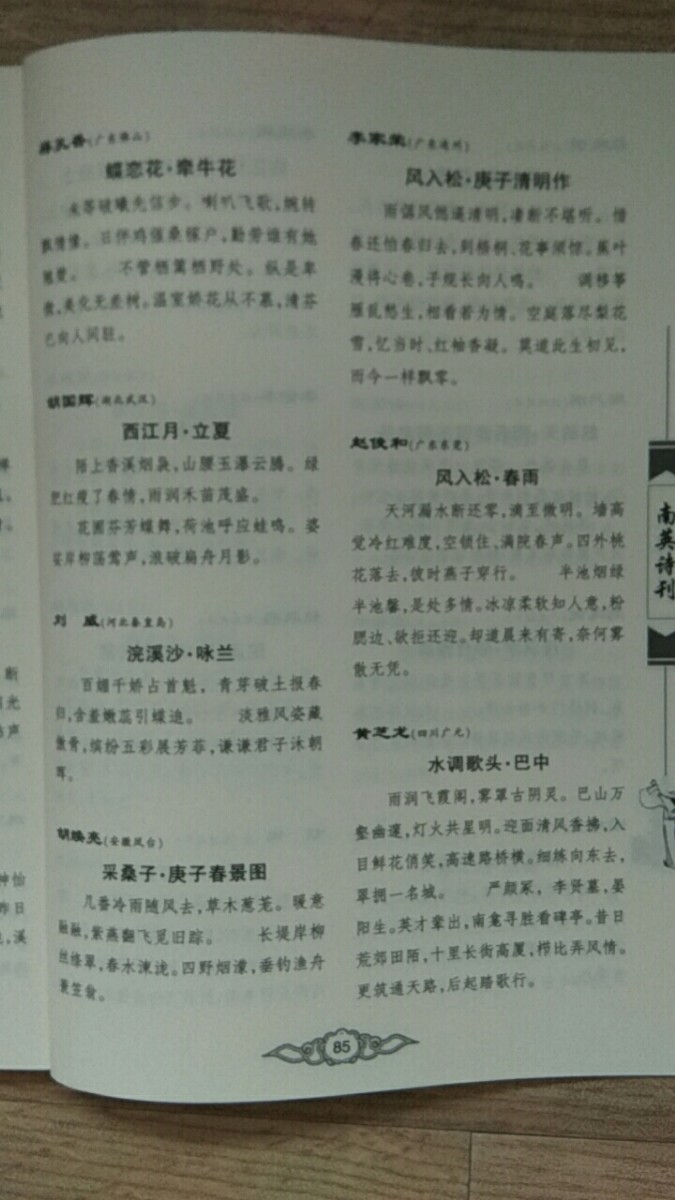 (广东佛山)
蝶恋花·牵牛花
未等破曦先信步。喇叭飞歌,婉转
飘情愫。日伴鸡催桑稼户,勤劳谁有她
不管栖篱栖野处。纵是卑
微,美化无差树。温室娇花从不慕,清芬
已向人间驻。
胡国辉(湖北武汉)
西江月·立夏
陌上香溪烟袅,山腰玉瀑云腾。绿
肥红瘦了春情,雨润禾苗茂盛。
花圃芬芳蝶舞,荷池呼应蛙鸣。婆
娑岸柳荡莺声,浪破扁舟月影。
刘 威(河北秦皇岛)
浣溪沙·咏兰
百媚千娇占首魁,青芽破土报春
归,含羞嫩蕊引蝶追。 淡雅风姿藏
傲骨,缤纷五彩展芳菲,谦谦君子沐朝
晖。
胡焕亮(安徽凤台)
采桑子·庚子春景图
几番冷雨随风去,草木葱茏。暖意
融融,紫燕翻飞觅旧踪。 长堤岸柳
丝绦翠,春水淙泷。四野烟濛,垂钓渔舟
蓑笠翁。
李家荣(广东)
风入松·庚子清明作
雨僝风僽逼清明,凄断不堪听。惜
春还怕春归去,到梧桐、花事须惊。蕉叶
漫将心卷,子规长向人鸣。 调移筝
雁乱愁生,相看若为情。空庭落尽梨花
雪,忆当时、红袖香凝。莫道此生初见,
而今一样飘零。
赵俊和(广东东莞)
风入松·春雨
天河漏水断还零,滴至微明。墙高
觉冷红难度,空锁住、满院春声。四外桃
花落去,彼时燕子穿行。 半池烟绿
半池馨,是处多情。冰凉柔软知人意,粉
腮边、欲拒还迎。却道晨来有寄,奈何雾
散无凭。
黄芝龙(四川广元)
水调歌头·巴中
雨润飞霞阁,雾罩古阴灵。巴山万
壑幽邃,灯火共星明。迎面清风香拂,入
目鲜花俏笑,高速路桥横。细练向东去,
翠拥一名城。 严颜冢,李贤墓,晏
阳生。英才辈出,南龛寻胜看碑亭。昔日
荒郊田陌,十里长街高厦,栉比弄风情。
更筑通天路,后起踏歌行。
南英诗刊
85